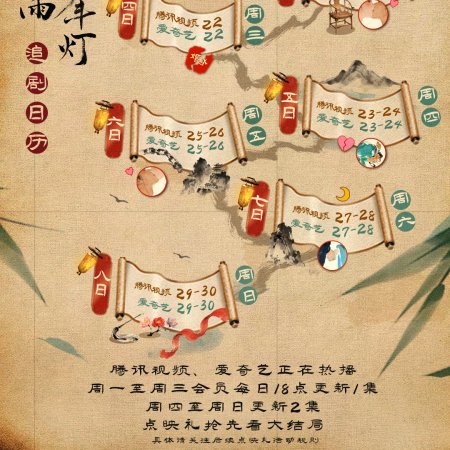 雨
年
灯
追剧日历
四日
22
爱奇艺 22
周三
五日
腾讯视频 23-24
爱奇艺 23-24
周四
六日
腾讯视频 25-26
爱奇艺 25-26
周五
七日
腾讯视频 27-28
爱奇艺 27-28
周六
八日
腾讯视频 29-30
爱奇艺 29-30
周日
腾讯视频、爱奇艺正在热播
周一至周三会员每日18点更新1集
周四至周日更新2集
点映礼抢先看大结局
具体请关注后续点映礼活动规则